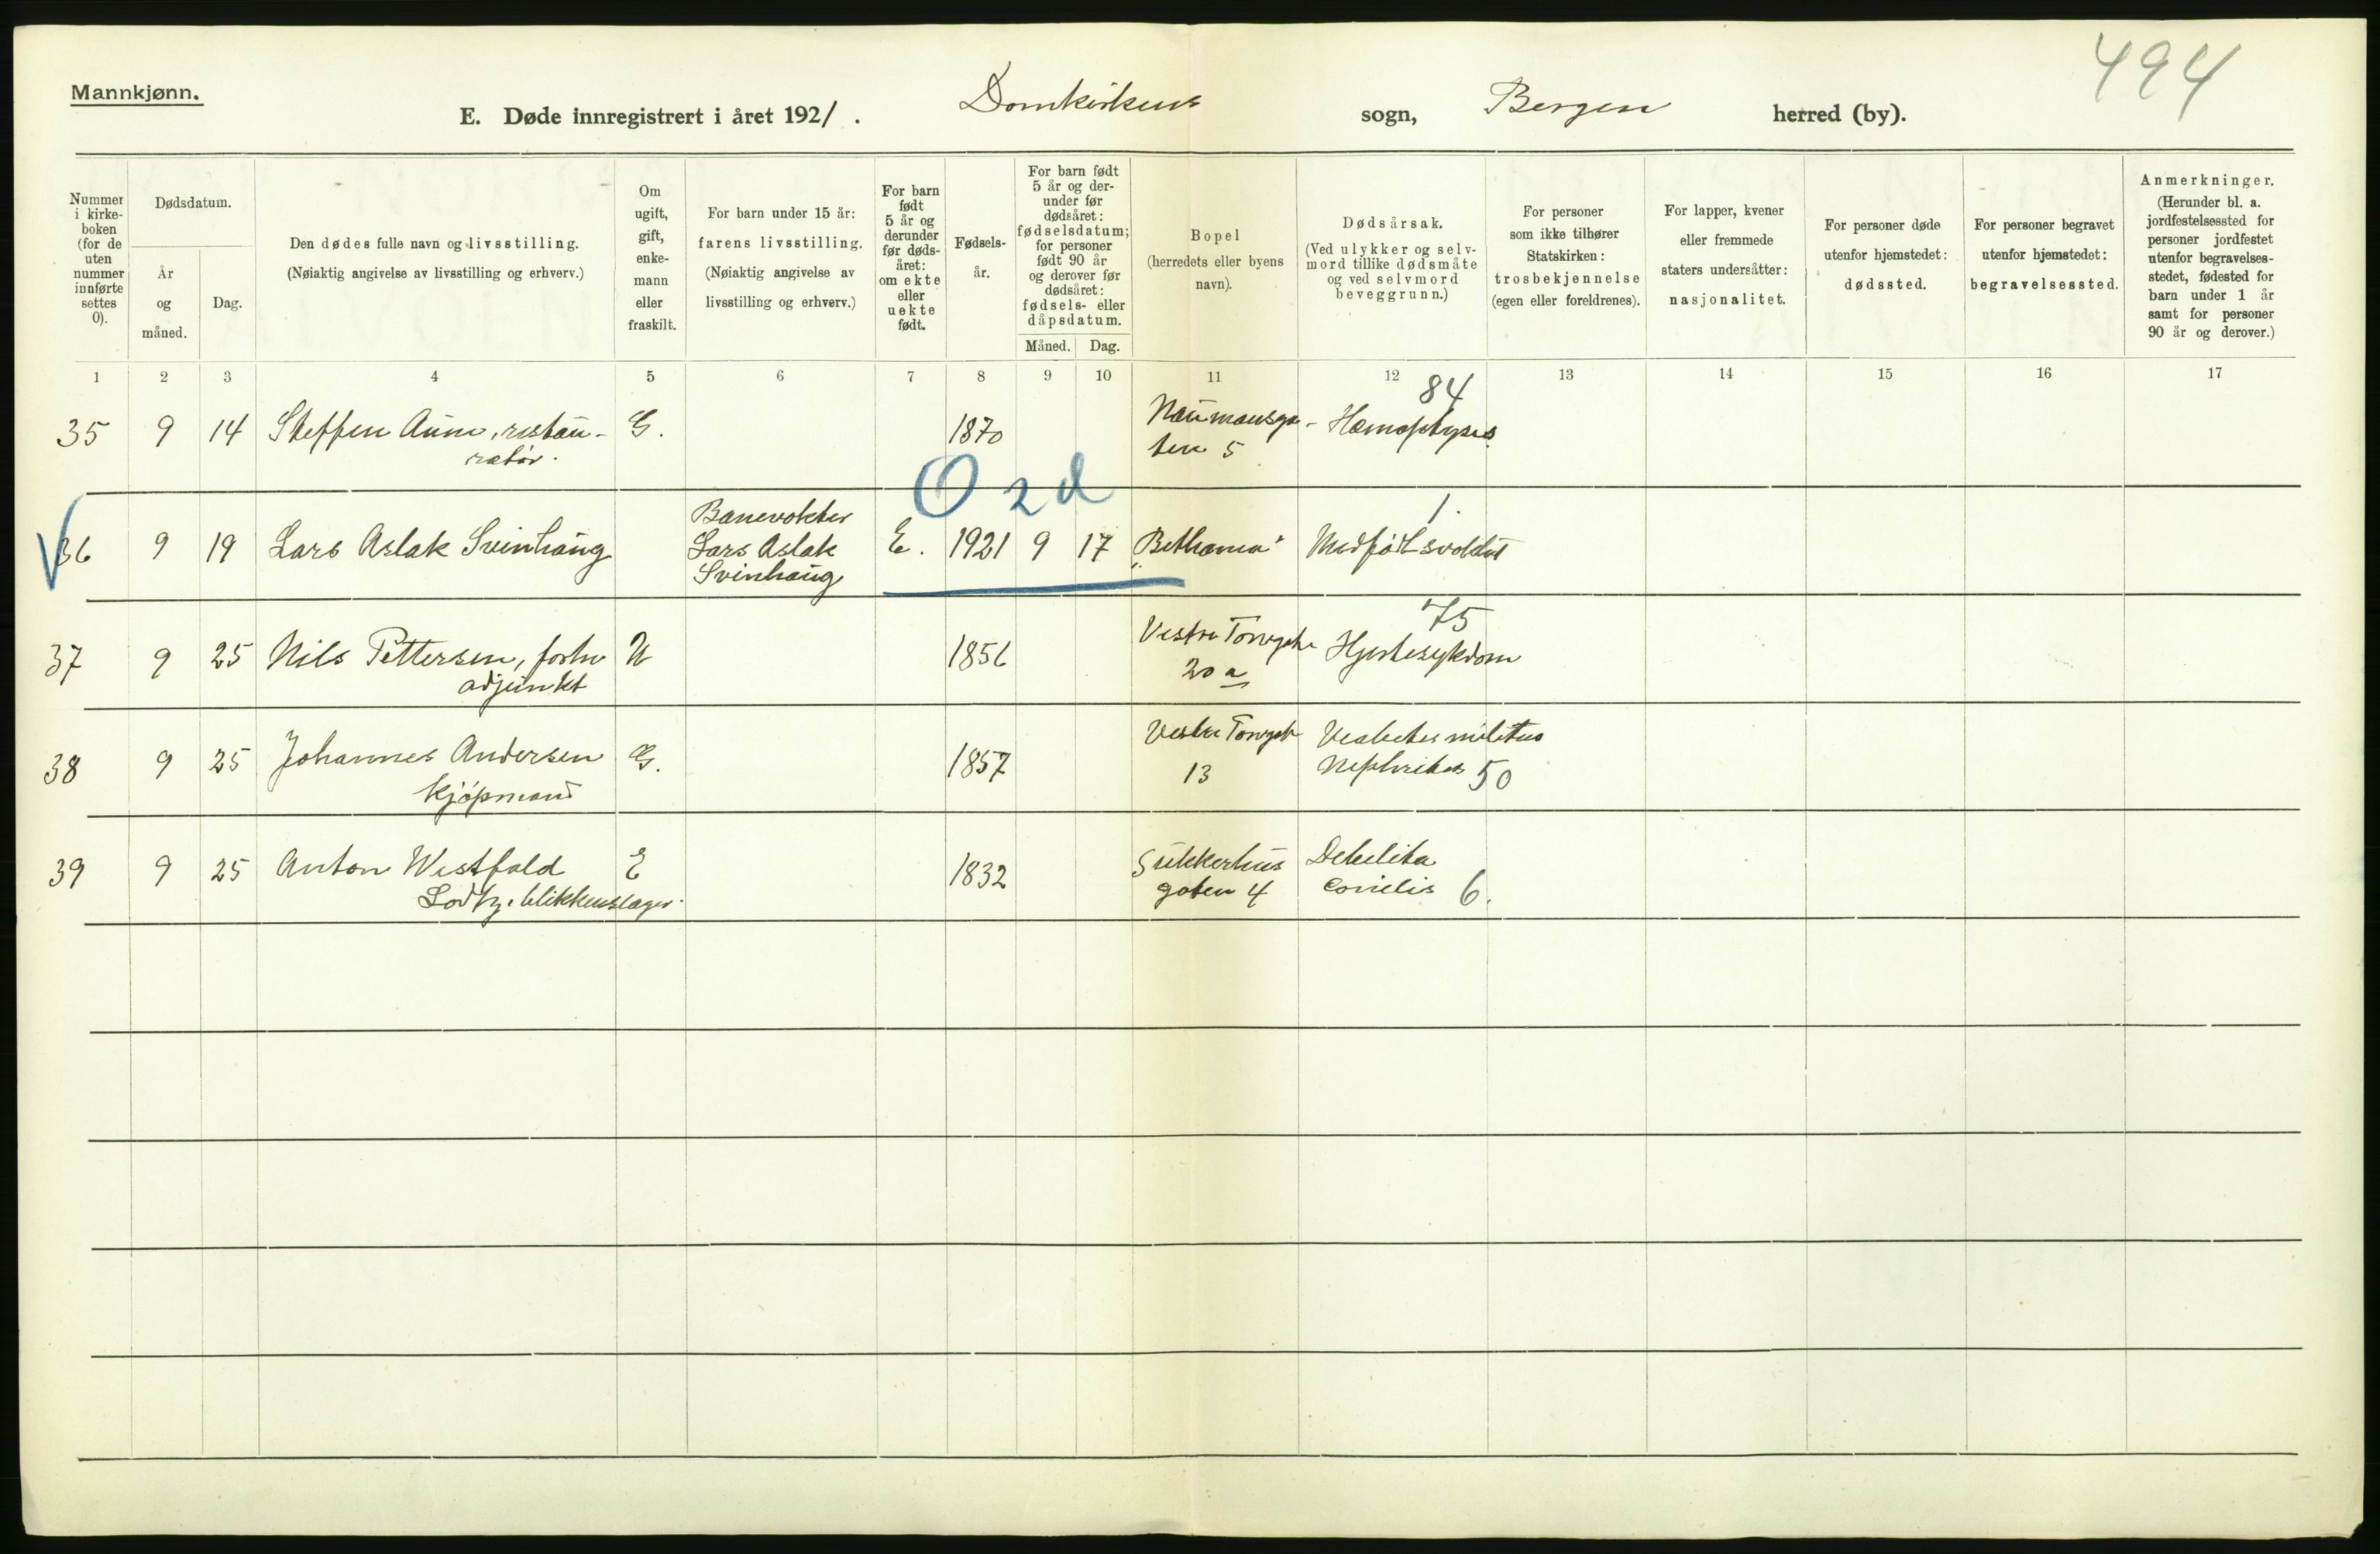 494
Mannkjønn.
E. Døde innregistrert i året 1921 . Domkirkens sogn, Bergen herred (by).
Nummer
i kirke-
boken
(for de
uten
nummer
innførte
settes
0).
Dødsdatum.
År
og
måned.
Dag.
Den dødes fulle navn og livsstilling.
(Nøiaktig angivelse av livsstilling og erhverv.)
Om
ugift,
gift,
enke-
mann
eller
fraskilt.
For barn under 15 år:
farens livsstilling.
(Nøiaktig angivelse av
livsstilling og erhverv.)
For barn
født
5 år og
derunder
før døds-
året:
om ekte
eller
uekte
født.
Fødsels-
år.
For barn født
5 år og der-
under før
dødsåret:
fødselsdatum;
for personer
født 90 år
og derover før
dødsåret:
fødsels- eller
dåpsdatum.
Måned. Dag.
Bopel
(herredets eller byens
navn).
Dødsårsak.
(Ved ulykker og selv-
mord tillike dødsmåte
og ved selvmord
beveggrunn.)
For personer
som ikke tilhører
Statskirken:
trosbekjennelse
(egen eller foreldrenes).
For lapper, kvener
eller fremmede
staters undersåtter:
nasjonalitet.
For personer døde
utenfor hjemstedet:
dødssted.
For personer begravet
utenfor hjemstedet:
begravelsessted.
Anmerkninger.
(Herunder bl. a.
jordfestelsessted for
personer jordfestet
utenfor begravelses-
stedet, fødested for
barn under 1 år
samt for personer
90 år og derover.)
1 2 3 4 5 6 7 8 9 10 11 12 13 14 15 16 17
84
35 9 14 Steffen Aune, restau- G. 1870 Naumansga- Hæmoptyses
ratør. ten 5
0 2 d
Banevokter 1.
36 9 19 Lars Aslak Svinhaug Lars Aslak E. 1921 9 17 "Bethania" Medfødt svakhet
Svinhaug
75
37 9 25 Nils Pettersen, forhv U 1856 Vestre Torvgate Hjertesykdom
adjunkt 20 a
38 9 25 Johannes Andersen G. 1857 Vestre Torvgt
kjøpmand 13 Nephrites 50
39 9 25 Anton Westfold E 1832 Sukkerhus
blikkenslager gaten 4 6.